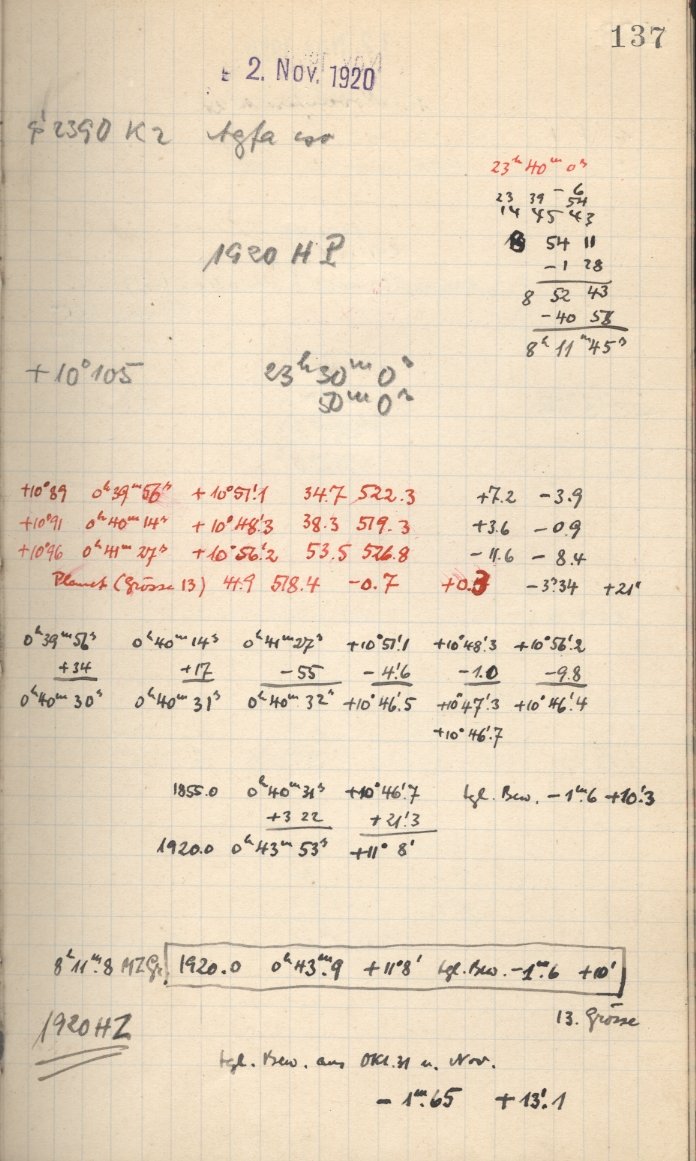 137
2. Nov. 1920
2390 K2 Agfa iso
23ʰ 40ᵐ 0ˢ
-6
23 39 54
14 45 43
8 54 11
-1 28
8 52 43
-40 58
8ʰ 11ᵐ 45ˢ
1920 HP
+10°105 23ʰ30ᵐ 0ˢ
50ᵐ 0ˢ
+10°89 0ʰ39ᵐ56ˢ +10°51'.1 34.7 522.3 +7.2 -3.9
+10°91 0ʰ40ᵐ14ˢ +10°48'.3 38.3 519.3 +3.6 -0.9
+10°96 0ʰ41ᵐ27ˢ +10°56'.2 53.5 526.8 -11.6 -8.4
Planet (Grösse 13) 41.9 518.4 -0.7 +0.3 -3ˢ.34 +21'
0ʰ39ᵐ56ˢ 0ʰ40ᵐ14ˢ 0ʰ41ᵐ27ˢ +10°51'.1 +10°48'.3 +10°56'.2
+34 +17 -55 -4'.6 -1.0 -9.8
0ʰ40ᵐ30ˢ 0ʰ40ᵐ31ˢ 0ʰ40ᵐ32ˢ +10°46'.5 +10°47'.3 +10°46'.4
+10°46'.7
1855.0 0ʰ40ᵐ31ˢ +10°46'.7 tgl. Bew. -1ᵐ.6 +10'.3
+3 22 +21'.3
1920.0 0ʰ43ᵐ53ˢ +11° 8'
8ʰ11ᵐ.8 MZGr. 1920.0 0ʰ43ᵐ.9 +11°8' tgl. Bew. -1ᵐ.6 +10'
13. Grösse
1920HZ
tgl. Bew. aus Okt. 31 u. Nov.
-1ᵐ.65 +13'.1